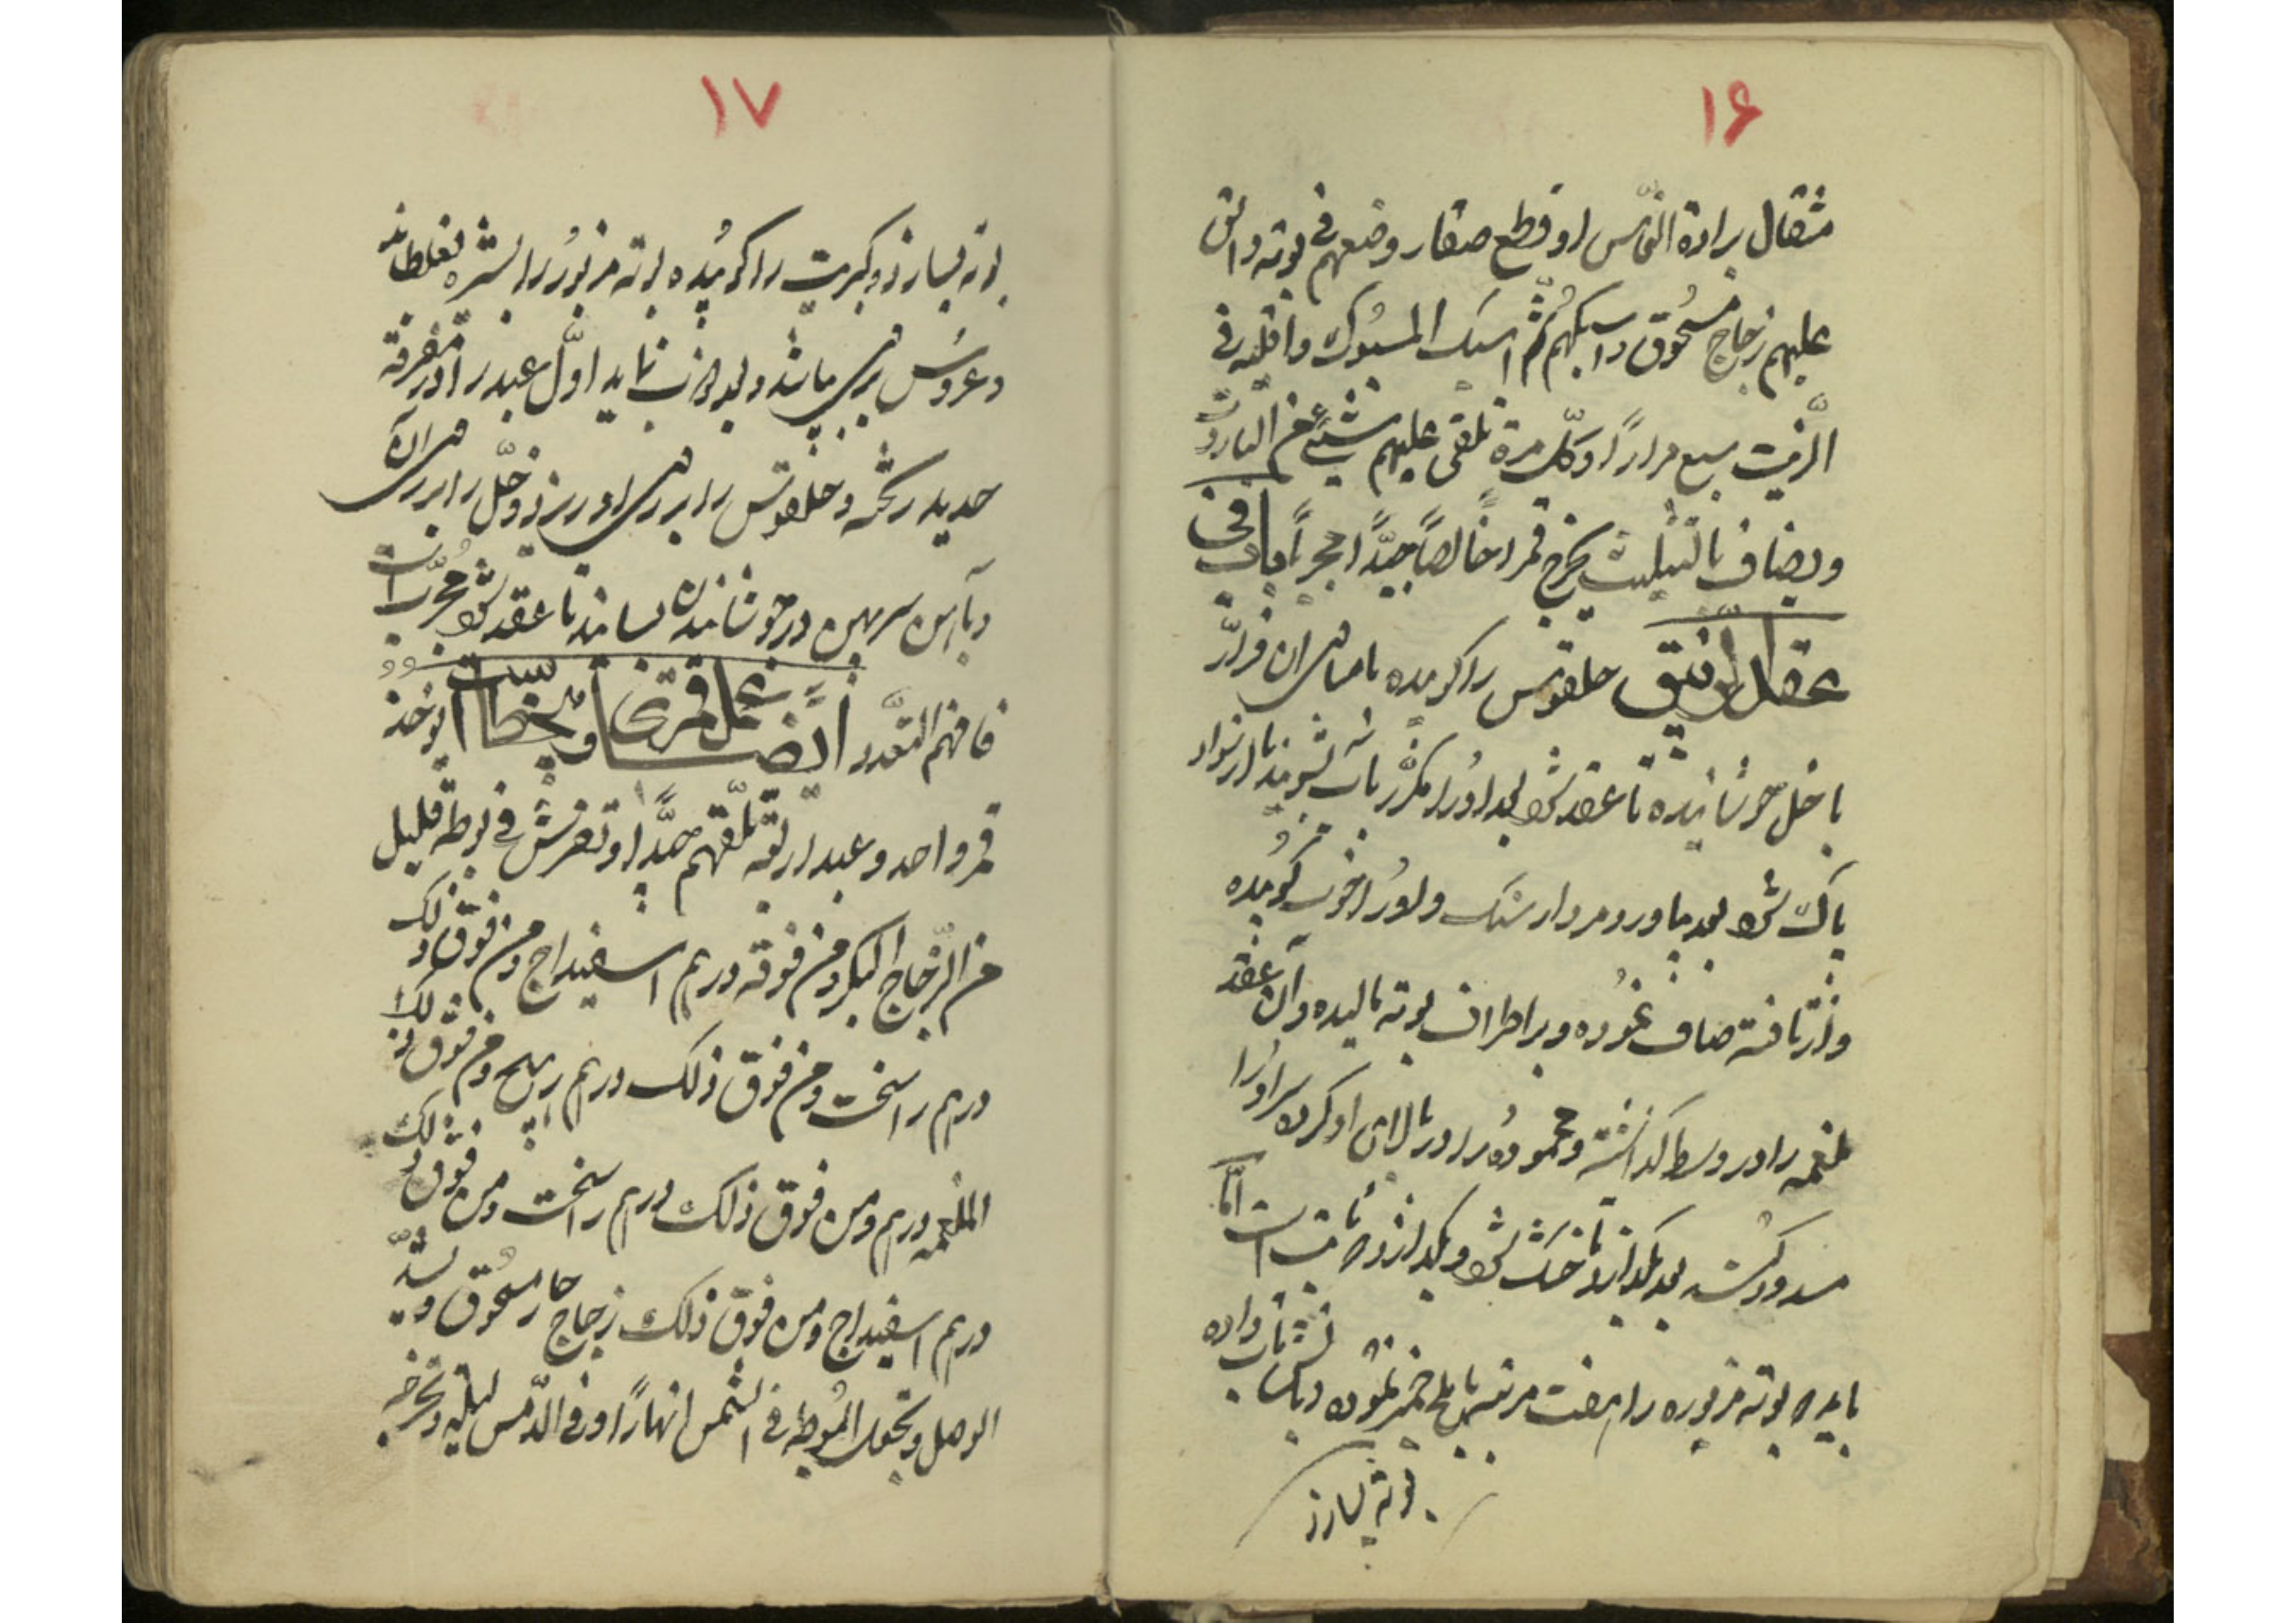 ۱۶
مثقال برادة النحاس او قطع صغار وضعهم فی بوته والق
علیهم زجاج مسحوق واسبکهم ثم اسبک المسبوک واقلبه فی
الزیت سبع مرارًا وکل مرة تلقی علیهم شیئ من البارود
ویضاف بالتثلیث یخرج قمرا خالصًا جیدًا مجربًا
عقد الزیبق خلقوتس را کوبیده با مساوی ان فرار
با خل جوشانیده تا عقد شود بعد او را مکرر باب بشویند تا از سواد
پاک شود بعد بیاورد مردار سنک و بوره خوب کوبیده
و از تافته صاف نموده و بر اطراف بوته مالیده و آن عقد
ملغمه را در وسط کذاشته و محموده را در بالای او کرده سر او را
مسدود کند بعد بکذارد تا خشک شود و بکدازد که ثابت است اما
باید که بوته مزبوره را هفت مرتبه با ملح خمیر نموده و باتش تاب داده
بوته بسازند
۱۷
بوته بسازند و کبریت را کوبیده بوته مزبور را بشیره بغلطانند
و عروس برمی باشد و بعد اول عبد را در مغرفه
حدید ریخته و خلقوتس را برابر او بریزند و خل را برابر ان
و باتش سرکین در جوشانیدن بسایند تا عقد شود مجرب است
فافهم التعدد ایضا عمل قمری یوخذ
قمر واحد و عبد اربعة تلقمهم جیدا و تفرش فی بوطه قلیل
من الزجاج البکر و من فوقه درهم اسفیداج و من فوق ذلک
درهم راسخت و من فوق ذلک درهم زرنیخ و من فوق ذلک
الملغمه درهم و من فوق ذلک درهم راسخت و من فوق ذلک
درهم اسفیداج و من فوق ذلک زجاج مسحوق و یشد
الوصل و تجعل البوطه فی الشمس نهارًا و فی الدمس لیلة و تخرجه